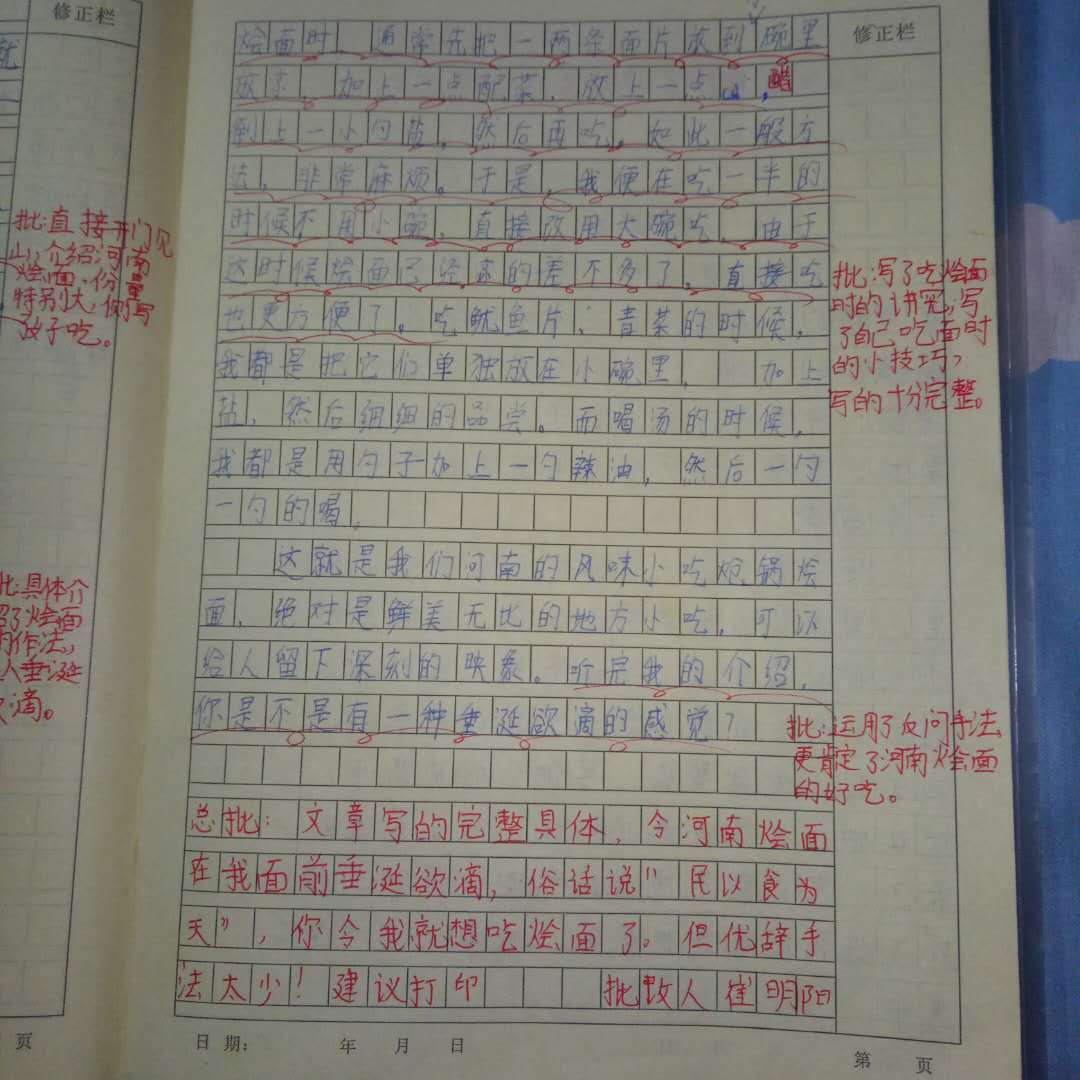 修正栏
就
批:直接开门见
山,介绍河南
烩面,份量
特别大,侧写
孜子吃。
批:具体介
绍了烩面
的作法,
人垂涎
欲滴。
页
烩面时、通常先把一两条面片放到碗里
放下,加上一点配菜,放上一点醋,
倒上一小勺盐,然后再吃,如此一般方
法,非常麻烦。于是,我便在吃一半的
时候不用小碗,直接改用大碗吃,由于
这时候烩面已经凉的差不多了,直接吃
也更方便了。吃鱿鱼片、青菜的时候,
我都是把它们单独放在小碗里,加上
盐,然后细细的品尝。而喝汤的时候,
我都是用勺子加上一勺辣油,然后一勺
一勺的喝,
这就是我们河南的风味小吃炝锅烩
面,绝对是鲜美无比的地方小吃,可以
给人留下深刻的映象。听完我的介绍,
你是不是有一种垂涎欲滴的感觉?
总批:文章写的完整具体,令河南烩面
在我面前垂涎欲滴,俗话说"民以食为
天",你令我就想吃烩面了。但优辞手
法太少!建议打印 批改人 崔明阳
修正栏
批:写了吃烩面
时的讲究,写
了自己吃面时
的小技巧,
写的十分完整。
批:运用了反问手法,
更肯定了河南烩面
的好吃。
日期: 年 月 日
第 页